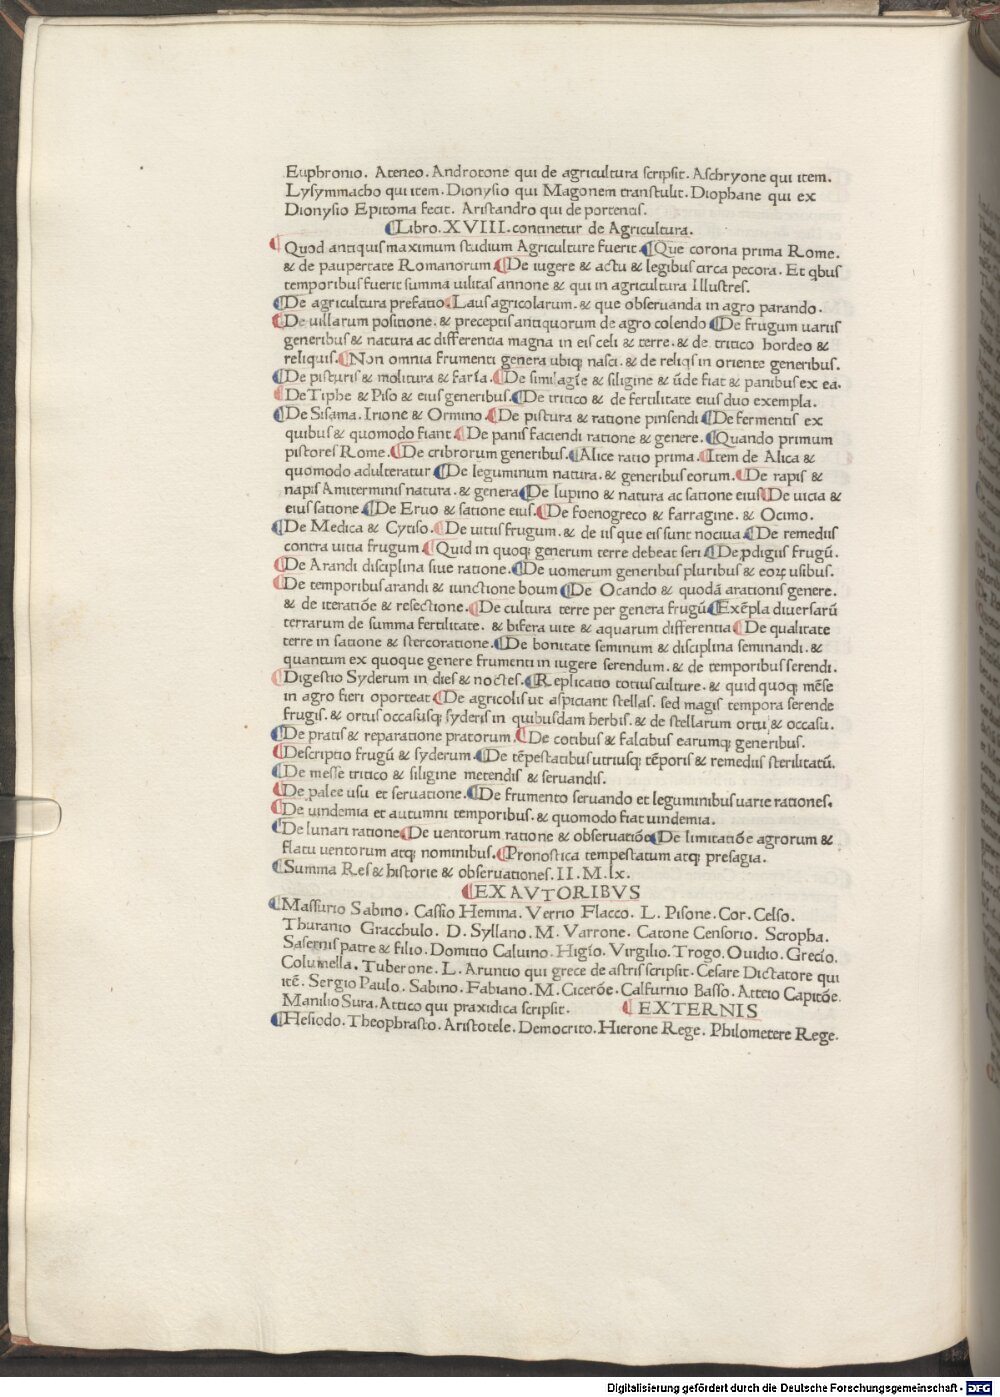 Euphronio. Ateneo. Androtone qui de agricultura scripsit. Aschryone qui item.
Lysymmacho qui item. Dionysio qui Magonem transtulit. Diophane qui ex
Dionysio Epitoma fecit. Aristandro qui de portentis.
¶Libro. XVIII. continetur de Agricultura.
¶Quod antiquis maximum studium Agriculture fuerit ¶Que corona prima Rome.
& de paupertate Romanorum ¶De iugere & actu & legibus circa pecora. Et qbus
temporibus fuerit summa uilitas annone & qui in agricultura Illustres.
¶De agricultura prefatio ¶Laus agricolarum. & que obseruanda in agro parando.
¶De uillarum positione. & preceptis antiquorum de agro colendo ¶De frugum uariis
generibus & natura ac differentia magna in eis celi & terre. & de tritico hordeo &
reliquis. ¶Non omnia frumenti genera ubiqȝ nasci. & de reliqis in oriente generibus.
¶De pisturis & molitura & farīa. ¶De similagīe & siligine & ūde fiat & panibus ex ea.
¶De Tiphe & Piso & eius generibus. ¶De tritico & de fertilitate eius duo exempla.
¶De Sisama. Irione & Ormino. ¶De pistura & ratione pinsendi ¶De fermentis ex
quibus & quomodo fiant ¶De panis faciendi ratione & genere. ¶Quando primum
pistores Rome. ¶De cribrorum generibus. ¶Alice ratio prima. ¶Item de Alica &
quomodo adulteratur ¶De leguminum natura. & generibus eorum. ¶De rapis &
napis Amiterminis natura. & genera ¶De lupino & natura ac satione eius ¶De uicia &
eius satione ¶De Eruo & satione eius. ¶De foenogreco & farragine. & Ocimo.
¶De Medica & Cytiso. ¶De uitiis frugum. & de iis que eis sunt nociua ¶De remediis
contra uitia frugum ¶Quid in quoqȝ generum terre debeat seri ¶De pdigiis frugū.
¶De Arandi disciplina siue ratione. ¶De uomerum generibus pluribus & eoꝝ usibus.
¶De temporibus arandi & iunctione boum ¶De Ocando & quodā arationis genere.
& de iteratiōe & resectione. ¶De cultura terre per genera frugū ¶Exēpla diuersarū
terrarum de summa fertilitate. & bifera uite & aquarum differentia ¶De qualitate
terre in satione & stercoratione. ¶De bonitate seminum & disciplina seminandi. &
quantum ex quoque genere frumenti in iugere serendum. & de temporibus serendi.
¶Digestio Syderum in dies & noctes. ¶Replicatio totius culture. & quid quoqȝ mēse
in agro fieri oporteat ¶De agricolis ut aspiciant stellas. sed magis tempora serende
frugis. & ortus occasusqȝ syderis in quibusdam herbis. & de stellarum ortu & occasu.
¶De pratis & reparatione pratorum. ¶De cotibus & falcibus earumqȝ generibus.
¶Descriptio frugū & syderum ¶De tēpestatibus utriusqȝ tēporis & remediis sterilitatū.
¶De messe tritico & siligine metendis & seruandis.
¶De palee usu et seruatione. ¶De frumento seruando et leguminibus uarie rationes.
¶De uindemia et autumni temporibus. & quomodo fiat uindemia.
¶De lunari ratione ¶De uentorum ratione & obseruatiōe ¶De limitatiōe agrorum &
flatu uentorum atqȝ nominibus. ¶Pronostica tempestatum atqȝ presagia.
¶Summa Res & historie & obseruationes. II. M. lx.
¶EX AVTORIBVS
¶Massurio Sabino. Cassio Hemina. Verrio Flacco. L. Pisone. Cor. Celso.
Thuranio Gracchulo. D. Syllano. M. Varrone. Catone Censorio. Scropha.
Sasernis patre & filio. Domitio Caluino. Higīo. Virgilio. Trogo. Ouidio. Grecīo.
Columella. Tuberone. L. Aruntio qui grece de astris scripsit. Cesare Dictatore qui
itē. Sergio Paulo. Sabino. Fabiano. M. Ciceroē. Calfurnio Basso. Atteio Capitōe.
Manilio Sura. Attico qui praxidica scripsit. ¶EXTERNIS
¶Hesiodo. Theophrasto. Aristotele. Democrito. Hierone Rege. Philometere Rege.
Digitalisierung gefördert durch die Deutsche Forschungsgemeinschaft - DFG